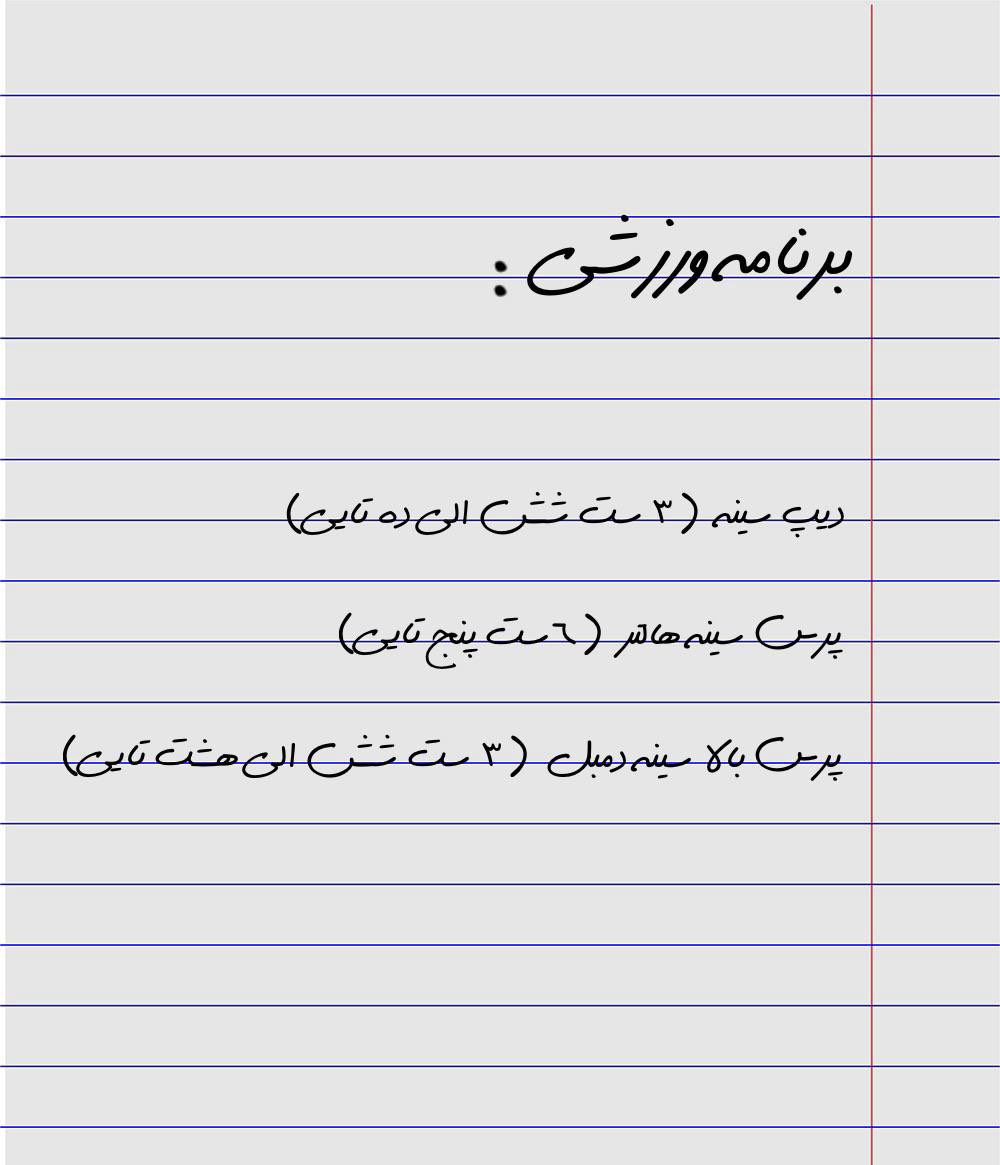 برنامه ورزشی :
دیپ سینه (۳ ست شش الی ده تایی)
پرس سینه هالتر (٦ ست پنج تایی)
پرس بالا سینه دمبل (۳ ست شش الی هشت تایی)